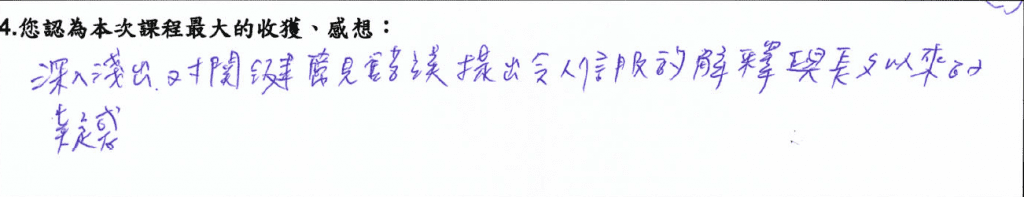 4.您認為本次課程最大的收獲、感想：
深入淺出,对關鍵舊見錯誤提出令人信服的解釋與長久以來的
疑惑